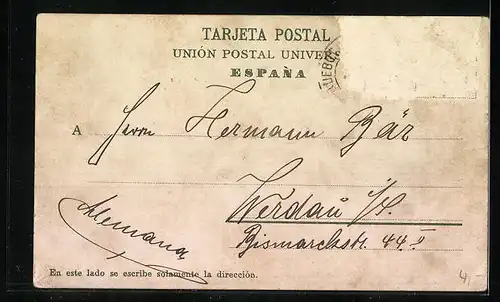 TARJETA POSTAL
UNIÓN POSTAL UNIVER
ESPAÑA
A Herrn Hermann Bär
Werdau i/S.
Bismarckstr. 44 II
Alemania
En este lado se escribe solamente la dirección.
4,-